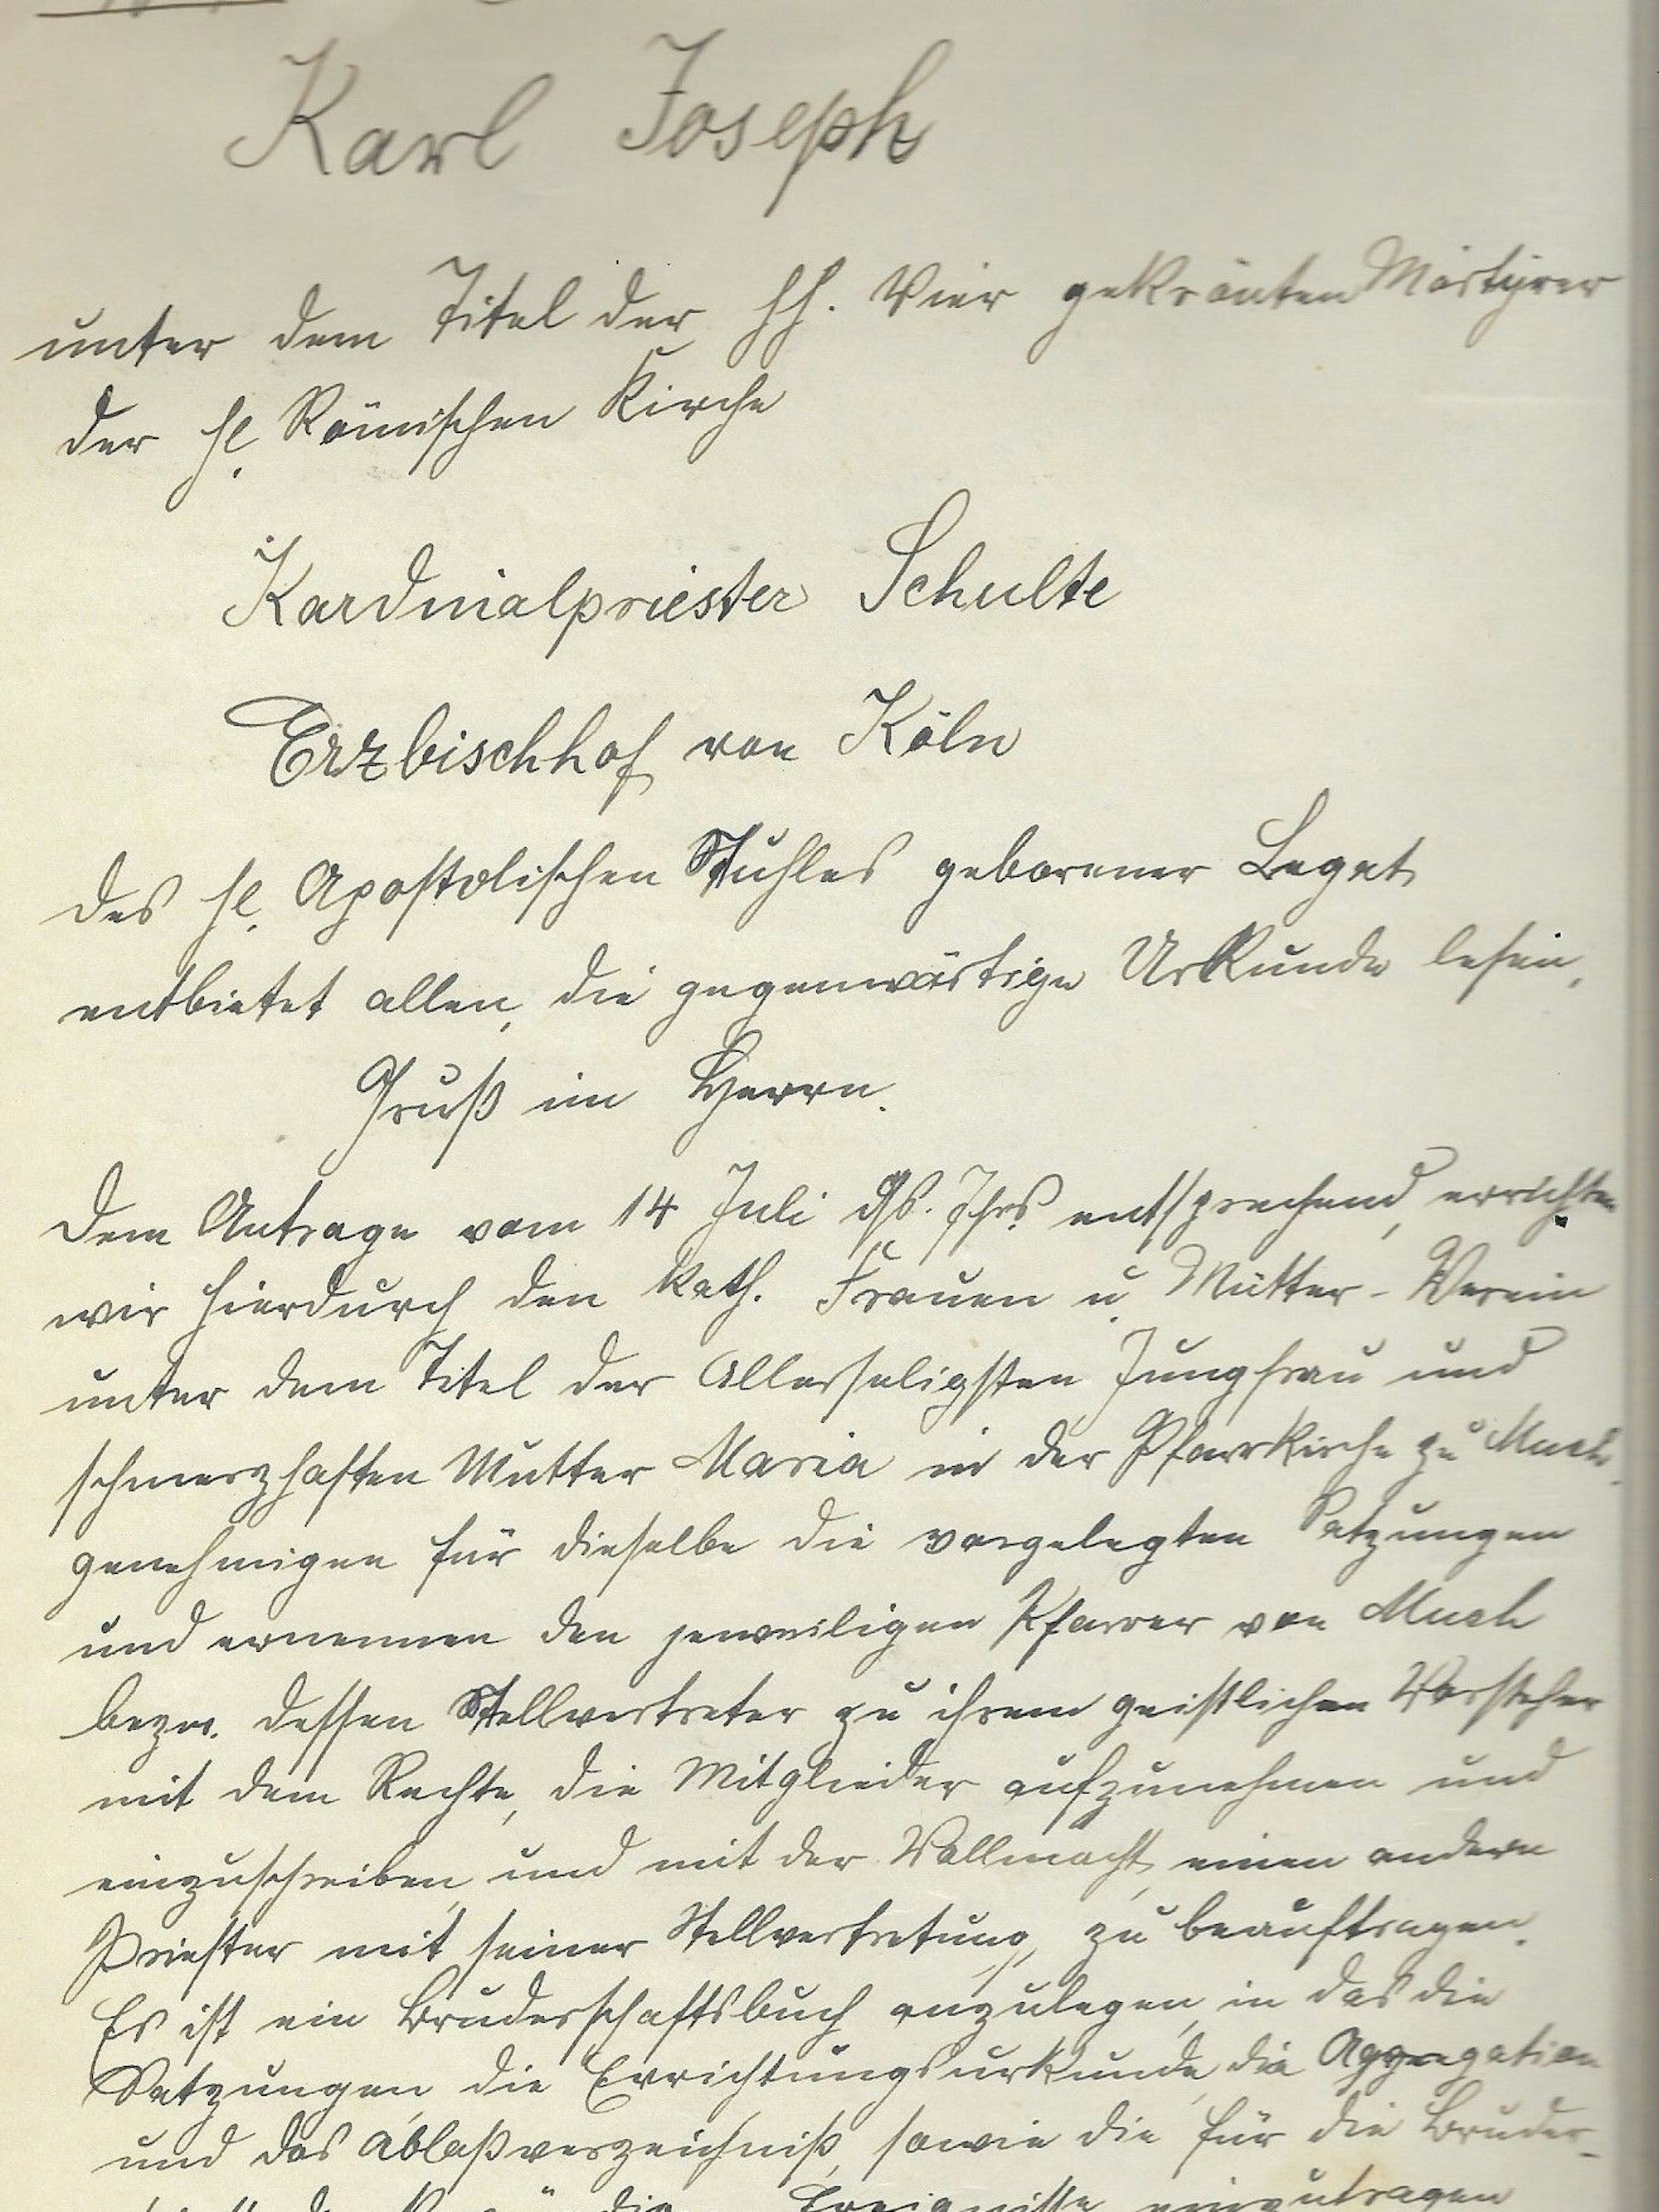 Karl Joseph
unter dem Titel der hh. Vier gekrönten Märtyrer
der hl. Römischen Kirche
Kardinalpriester Schulte
Erzbischhof von Köln
des hl. Apostolischen Stuhles geborener Legat
entbietet allen, die gegenwärtige Urkunde lesen,
Gruß im Herrn.
Dem Antrage vom 14 Juli ds. Jhrs entsprechend, errichten
wir hierdurch den kath. Frauen u. Mütter-Verein
unter dem Titel der Allerseligsten Jungfrau und
schmerzhaften Mutter Maria in der Pfarrkirche zu Much,
genehmigen für dieselbe die vorgelegten Satzungen
und ernennen den jeweiligen Pfarrer von Much
bezw. dessen Stellvertreter zu ihrem geistlichen Vorsteher
mit dem Rechte, die Mitglieder aufzunehmen und
einzuschreiben, und mit der Vollmacht, einen andern
Priester mit seiner Stellvertretung zu beauftragen.
Es ist ein Bruderschaftsbuch anzulegen, in das die
Satzungen, die Errichtungsurkunde, die Aggregation
und das Ablaßverzeichniß, sowie die für die Bruder-
die Ereignisse einzutragen